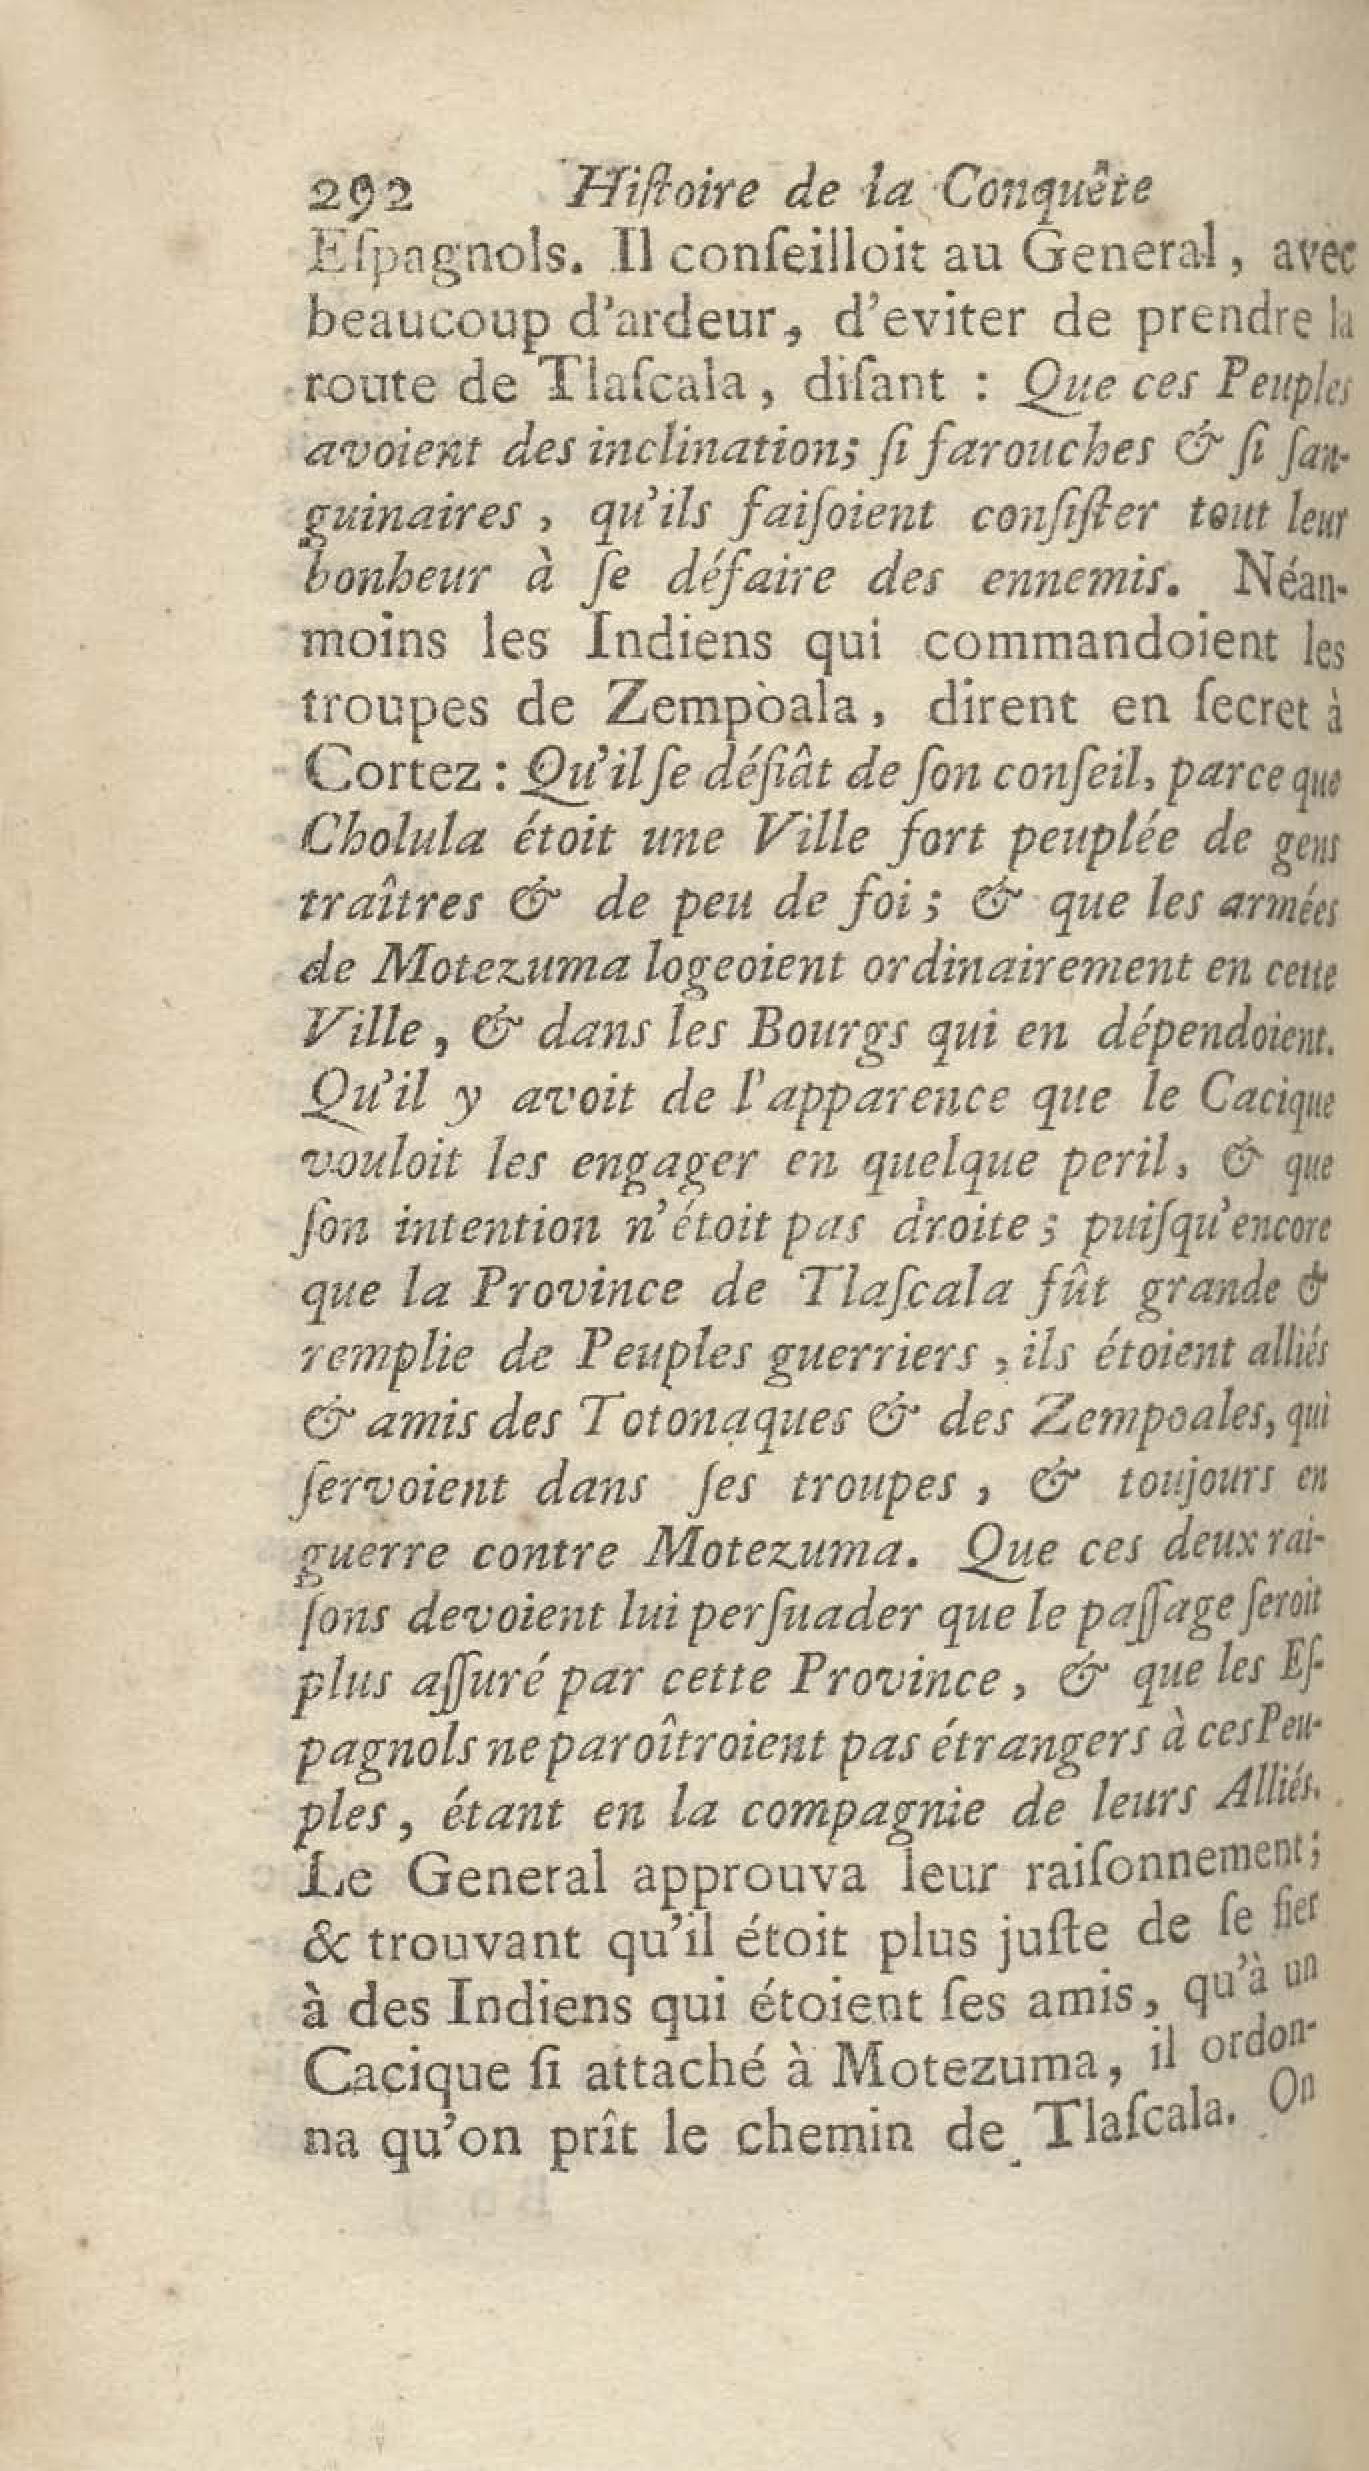 292 Hiſtoire de la Conquête
Eſpagnols. Il conſeilloit au General, avec
beaucoup d'ardeur, d'eviter de prendre la
route de Tlaſcala, diſant : Que ces Peuples
avoient des inclinations ſi farouches & ſi ſan-
guinaires, qu'ils faiſoient conſiſter tout leur
bonheur à ſe défaire des ennemis. Néan-
moins les Indiens qui commandoient les
troupes de Zempoala, dirent en ſecret à
Cortez : Qu'il ſe défiât de ſon conſeil, parce que
Cholula étoit une Ville fort peuplée de gens
traîtres & de peu de foi ; & que les armées
de Motezuma logeoient ordinairement en cette
Ville, & dans les Bourgs qui en dépendoient.
Qu'il y avoit de l'apparence que le Cacique
vouloit les engager en quelque peril, & que
ſon intention n'étoit pas droite ; puiſqu'encore
que la Province de Tlaſcala fût grande &
remplie de Peuples guerriers, ils étoient alliés
& amis des Totonaques & des Zempoales, qui
ſervoient dans ſes troupes, & toujours en
guerre contre Motezuma. Que ces deux rai-
ſons devoient lui perſuader que le paſſage ſeroit
plus aſſuré par cette Province, & que les Eſ-
pagnols ne paroîtroient pas étrangers à ces Peu-
ples, étant en la compagnie de leurs Alliés.
Le General approuva leur raiſonnement ;
& trouvant qu'il étoit plus juſte de ſe fier
à des Indiens qui étoient ſes amis, qu'à un
Cacique ſi attaché à Motezuma, il ordon-
na qu'on prît le chemin de Tlaſcala. On